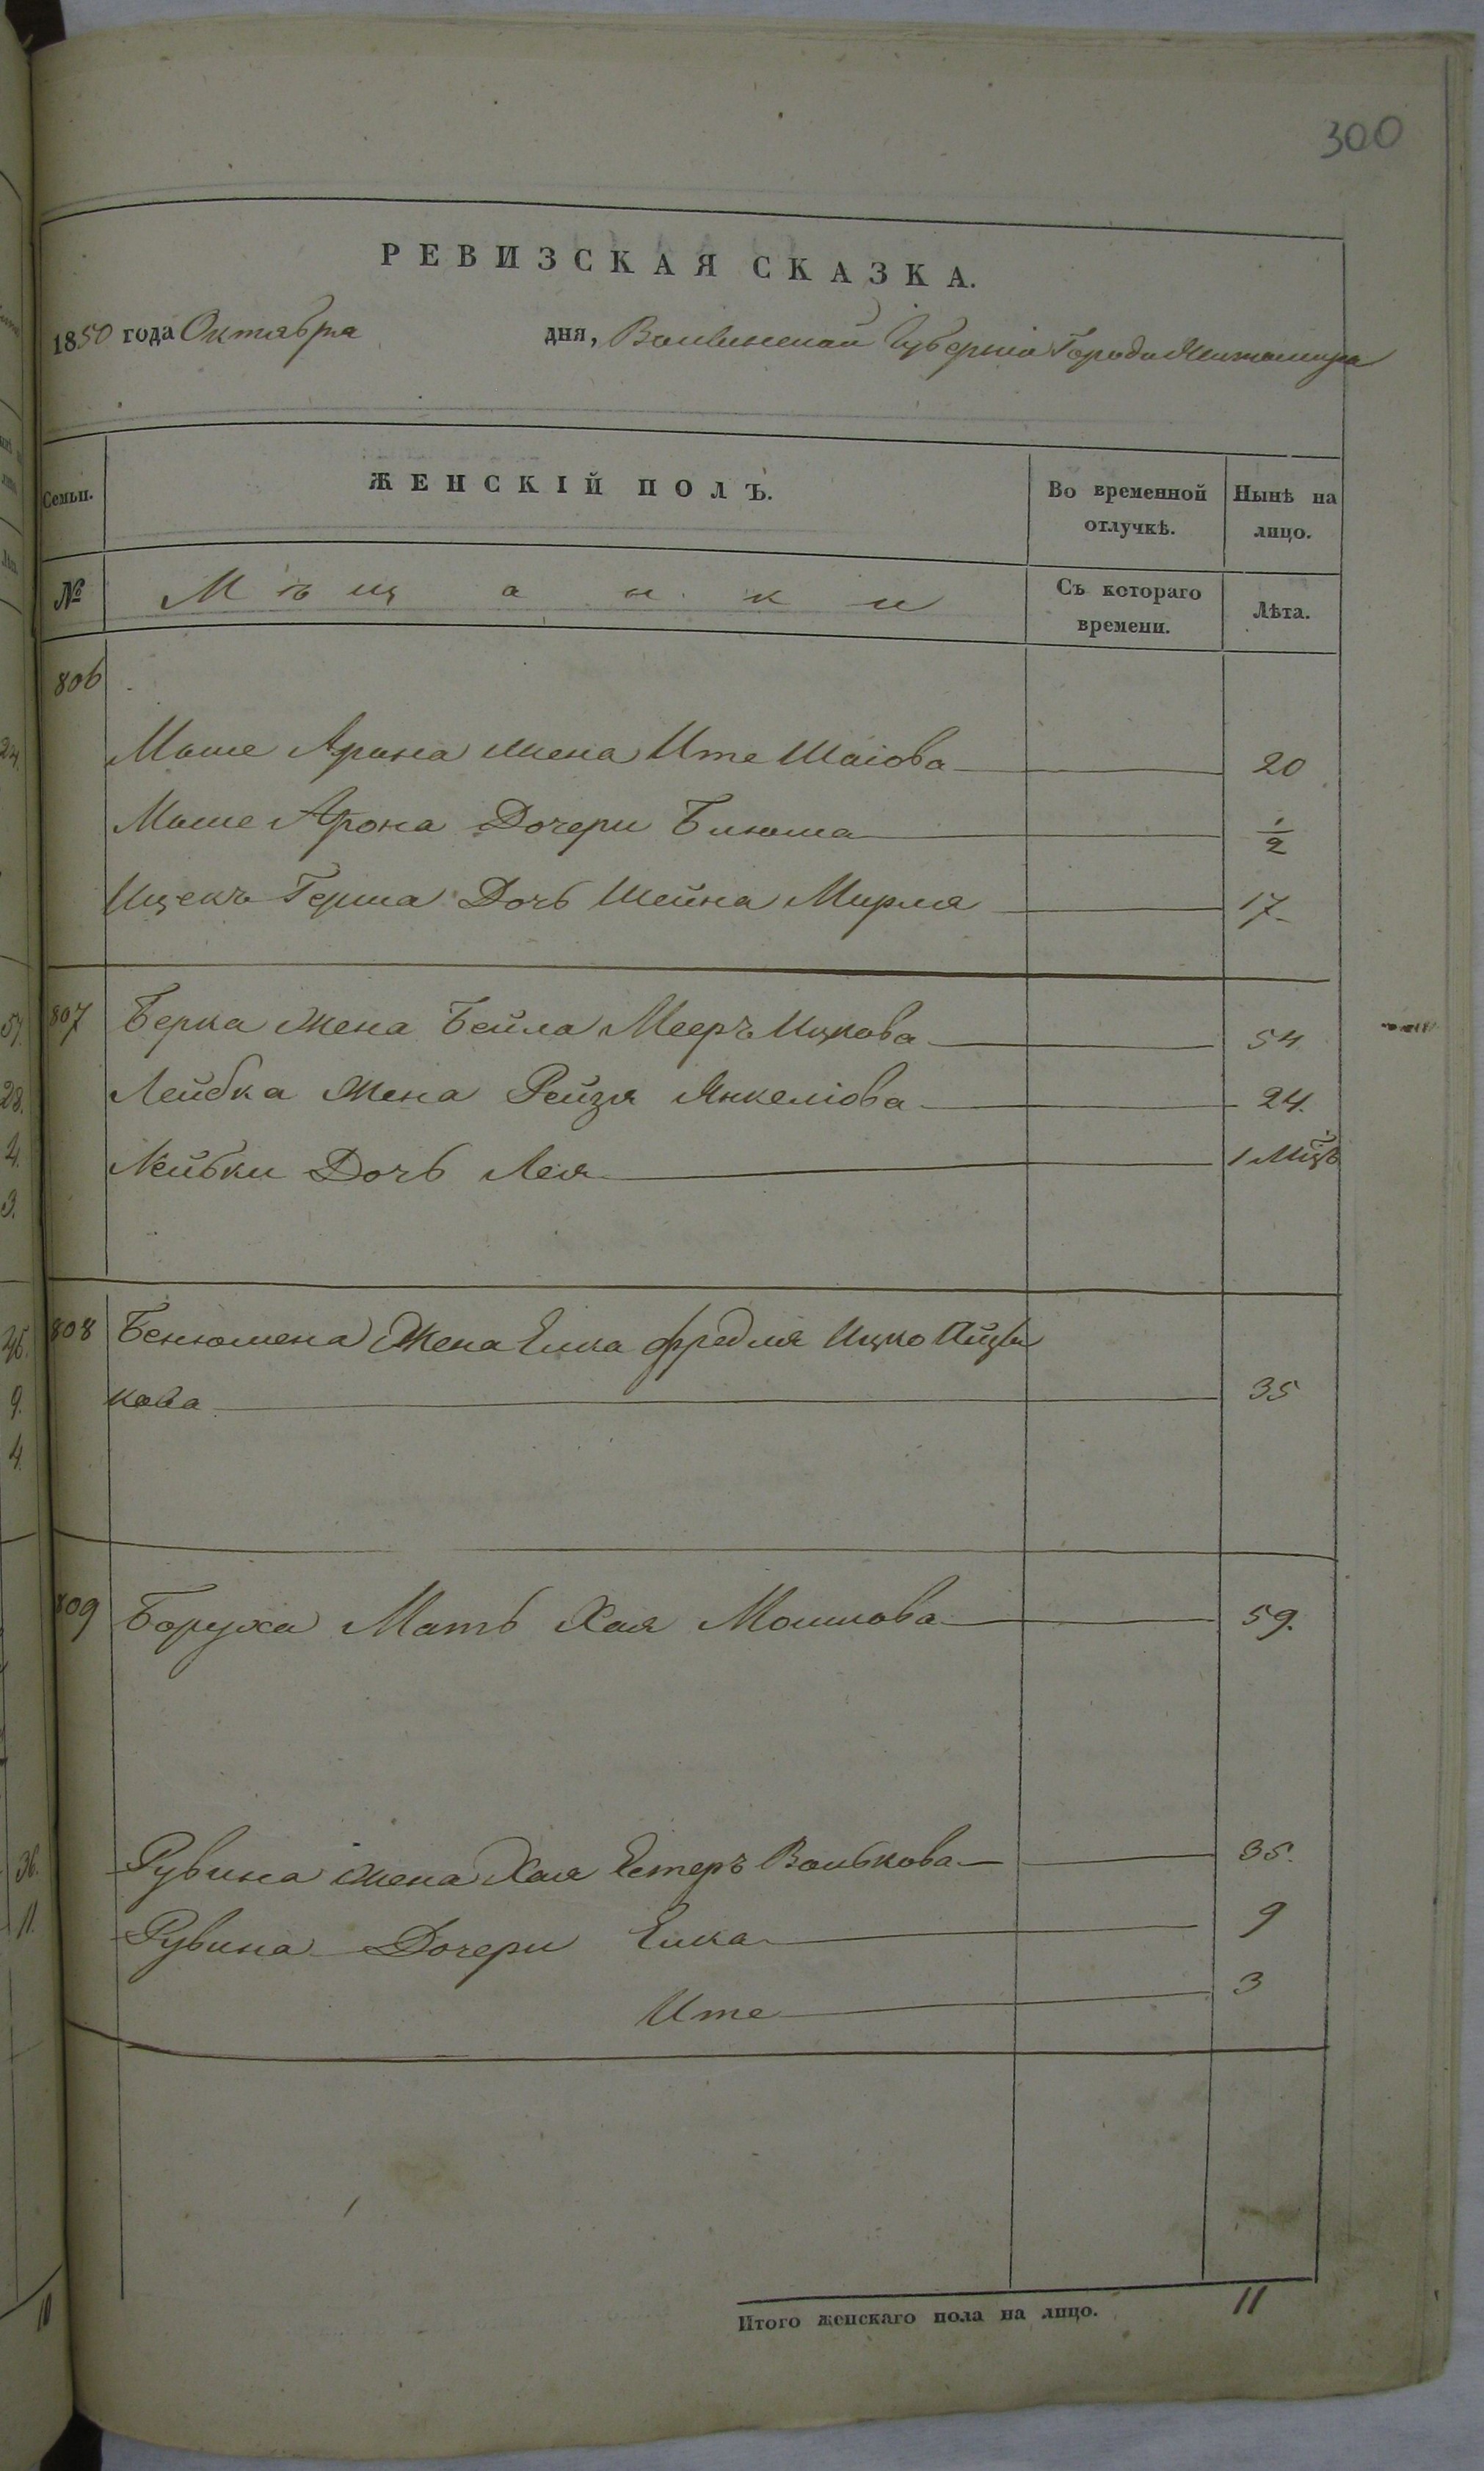 300
РЕВИЗСКАЯ СКАЗКА.
1850 года Октября дня, Волынской Губерніи Города Житомира
Семьи. ЖЕНСКІЙ ПОЛЪ. Во временной отлучкѣ. Нынѣ на лицо.
№ Мѣщанки Съ котораго времени. Лѣта.
806
Моше Арона жена Ите Шаіова 20
Моше Арона Дочери Блюма 1/2
Ицекъ Герша Дочь Шейна Мирля 17
807 Берка Жена Бейла Мееръ Ицкова 54
Лейбка Жена Рейзя Янкеліова 24.
Лейбки Дочь Лея 1 Мцъ
808 Бенюмена Жена Елка Фредля Ицко
кова 35
809 Боруха Мать Хая Мошкова 59.
Рувина жена Хая Естеръ Волькова 35.
Рувина Дочери Елка 9
Ите 3
Итого женскаго пола на лицо. 11